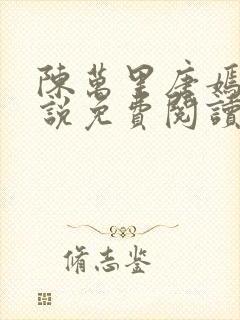 陳萬里唐嫣
說免費閱讀
脩志鉴